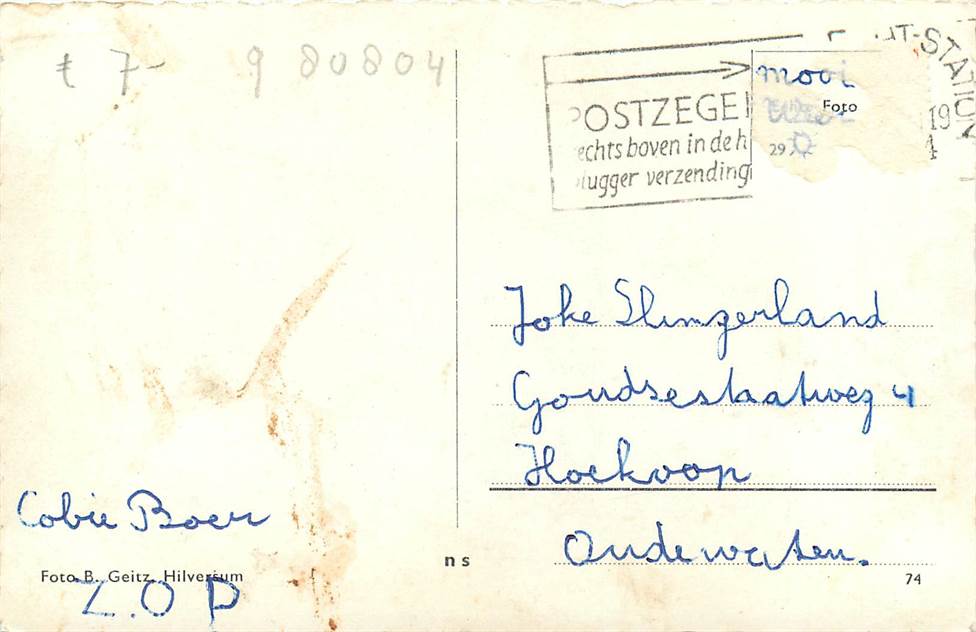 € 7- 9 80804
POSTZEGEL
rechts boven in de h
vlugger verzending
UT-STATION
19
4
mooi
Foto
29.
Joke Slingerland
Goudsestaatweg 4
Hoekoop
Oudewaten.
Cobie Boer
Foto B. Geitz, Hilversum
Z.O P
ns
74